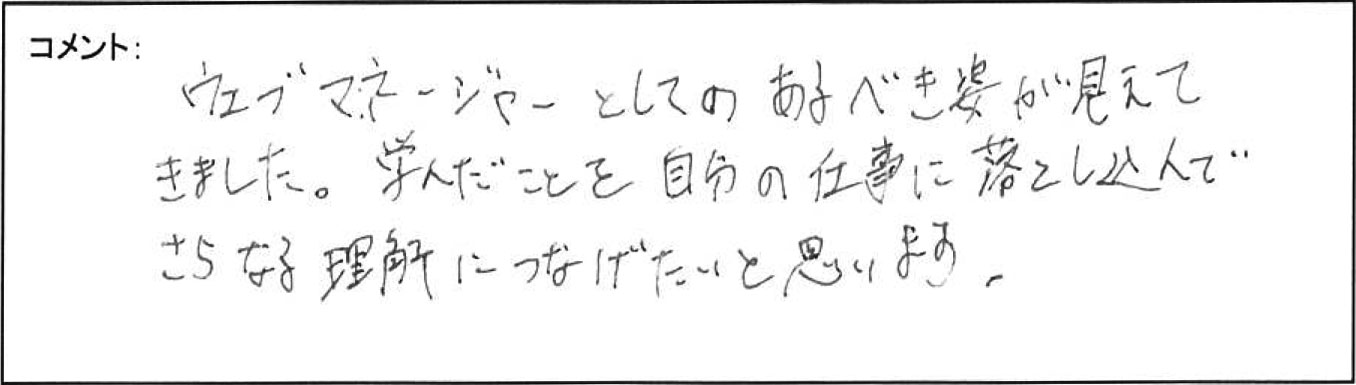 コメント:
ウェブマネージャーとしてのあるべき姿が見えて
きました。学んだことを自分の仕事に落とし込んで
さらなる理解につなげたいと思います。